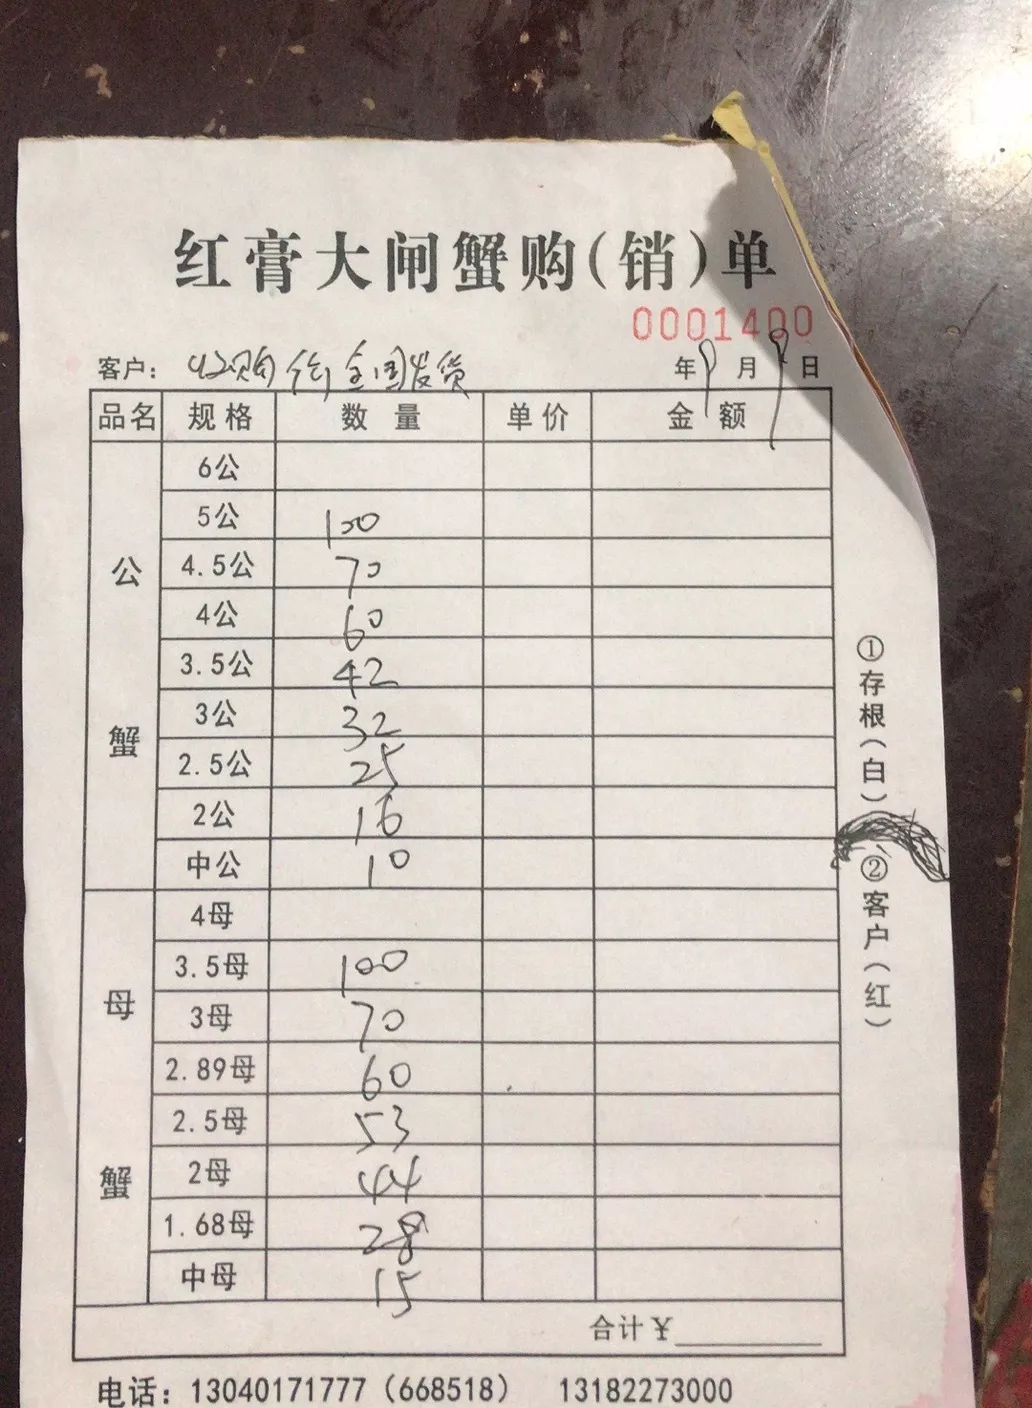 红膏大闸蟹购(销)单
0001400
客户: 收购价全国发货 年9月9日
品名 规格 数量 单价 金额
公蟹
6公
5公 100
4.5公 70
4公 60
3.5公 42
3公 32
2.5公 25
2公 16
中公 10
母蟹
4母
3.5母 100
3母 70
2.89母 60
2.5母 53
2母 44
1.68母 28
中母 15
合计¥
电话: 13040171777 (668518) 13182273000
①存根(白)
②客户(红)